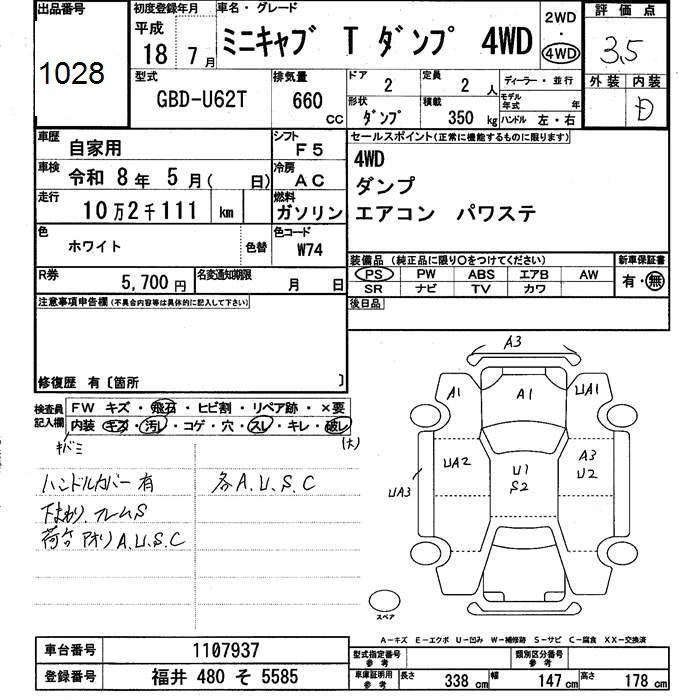 出品番号
1028
初度登録年月
平成
18 7 月
車名・グレード
ミニキャブ T ダンプ 4WD
2WD
・
4WD
評価点
3.5
外装 内装
D
型式
GBD-U62T
排気量
660
CC
ドア
2
定員
2 人
ディーラー・並行
形状
ダンプ
積載
350 kg
モデル年式 年
ハンドル 左・右
車歴
自家用
シフト
F5
車検
令和 8 年 5 月( 日)
冷房
AC
走行
10万2千111 km
燃料
ガソリン
色
ホワイト
色替
色コード
W74
R券
5,700 円
名変通知期限
月 日
セールスポイント(正常に機能するものに限ります)
4WD
ダンプ
エアコン パワステ
装備品 (純正品に限り○をつけてください)
PS PW ABS エアB AW
SR ナビ TV カワ
新車保証書
有・無
後日品
注意事項申告欄(不具合内容等は具体的に記入して下さい)
修復歴 有〔箇所 〕
検査員記入欄
FW キズ・飛石・ヒビ割・リペア跡・×要
内装 キズ・汚レ・コゲ・穴・スレ・キレ・破レ
(大)
キバミ
ハンドルカバー有
下まわり、フレームS
荷台 アオリA.U.S.C
各A.U.S.C
A3
A1 A1 UA1
UA2 U1 S2 A3 U2
UA3
スペア
A-キズ E-エクボ U-凹み W-補修跡 S-サビ C-腐食 XX-交換済
車台番号
1107937
登録番号
福井 480 そ 5585
型式指定番号
参考
類別区分番号
参考
車庫証明用
参考
長さ 338 cm 幅 147 cm 高さ 178 cm